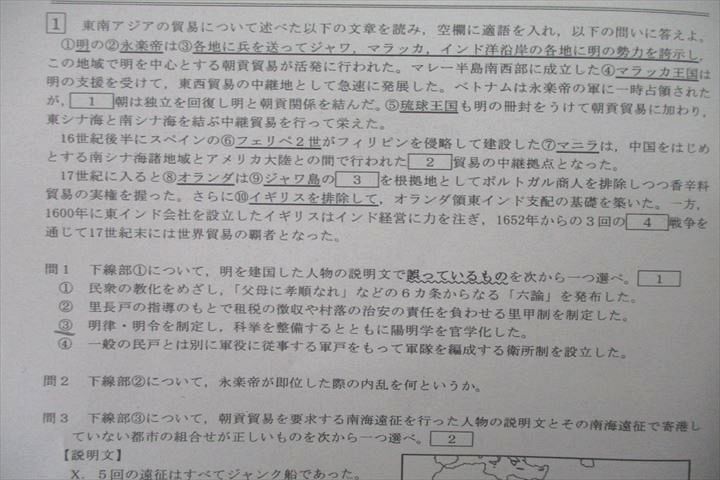 1 東南アジアの貿易について述べた以下の文章を読み,空欄に適語を入れ,以下の問いに答えよ。
①明の②永楽帝は③各地に兵を送ってジャワ,マラッカ,インド洋沿岸の各地に明の勢力を誇示し,
この地域で明を中心とする朝貢貿易が活発に行われた。マレー半島南西部に成立した④マラッカ王国は
明の支援を受けて,東西貿易の中継地として急速に発展した。ベトナムは永楽帝の軍に一時占領された
が, 1 朝は独立を回復し明と朝貢関係を結んだ。⑤琉球王国も明の冊封をうけて朝貢貿易に加わり,
東シナ海と南シナ海を結ぶ中継貿易を行って栄えた。
16世紀後半にスペインの⑥フェリペ2世がフィリピンを侵略して建設した⑦マニラは,中国をはじめ
とする南シナ海諸地域とアメリカ大陸との間で行われた 2 貿易の中継拠点となった。
17世紀に入ると⑧オランダは⑨ジャワ島の 3 を根拠地としてポルトガル商人を排除しつつ香辛料
貿易の実権を握った。さらに⑩イギリスを排除して,オランダ領東インド支配の基礎を築いた。一方,
1600年に東インド会社を設立したイギリスはインド経営に力を注ぎ,1652年からの3回の 4 戦争を
通じて17世紀末には世界貿易の覇者となった。
問1 下線部①について,明を建国した人物の説明文で誤っているものを次から一つ選べ。 1
① 民衆の教化をめざし,「父母に孝順なれ」などの6カ条からなる「六諭」を発布した。
② 里長戸の指導のもとで租税の徴収や村落の治安の責任を負わせる里甲制を制定した。
③ 明律・明令を制定し,科挙を整備するとともに陽明学を官学化した。
④ 一般の民戸とは別に軍役に従事する軍戸をもって軍隊を編成する衛所制を設立した。
問2 下線部②について,永楽帝が即位した際の内乱を何というか。
問3 下線部③について,朝貢貿易を要求する南海遠征を行った人物の説明文とその南海遠征で寄港し
ていない都市の組合せが正しいものを次から一つ選べ。 2
【説明文】
X.5回の遠征はすべてジャンク船であった。